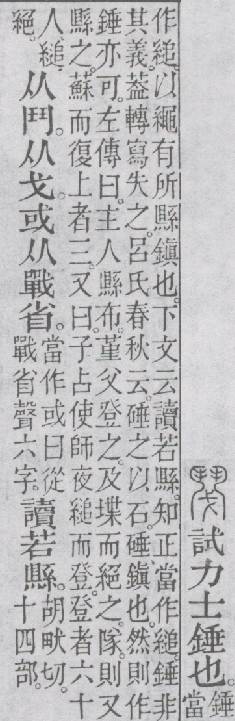 試力士錘也。錘當
作縋。以繩有所縣鎮也。下文云讀若縣。知正當作縋。錘非
其義。葢轉寫失之。呂氏春秋云。硾之以石。硾鎮也。然則作
錘亦可。左傳曰。主人縣布。堇父登之。及堞而絕之。隊。則又
縣之。蘇而復上者三。又曰。子占使師夜縋而登。登者六十
人。縋絕。从鬥。从戈。或从戰省。當作或曰從戰省聲六字。讀若縣。胡畎切。十四部。